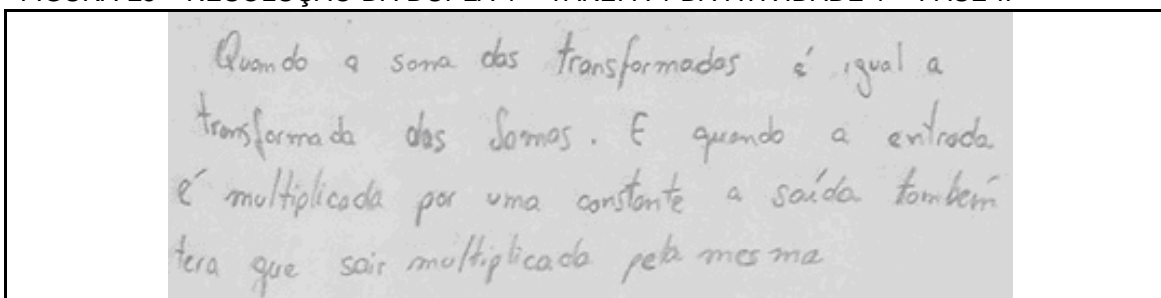 Quando a soma das transformadas é igual a
transformada das somas. E quando a entrada
é multiplicada por uma constante a saída também
tera que sair multiplicada pela mesma